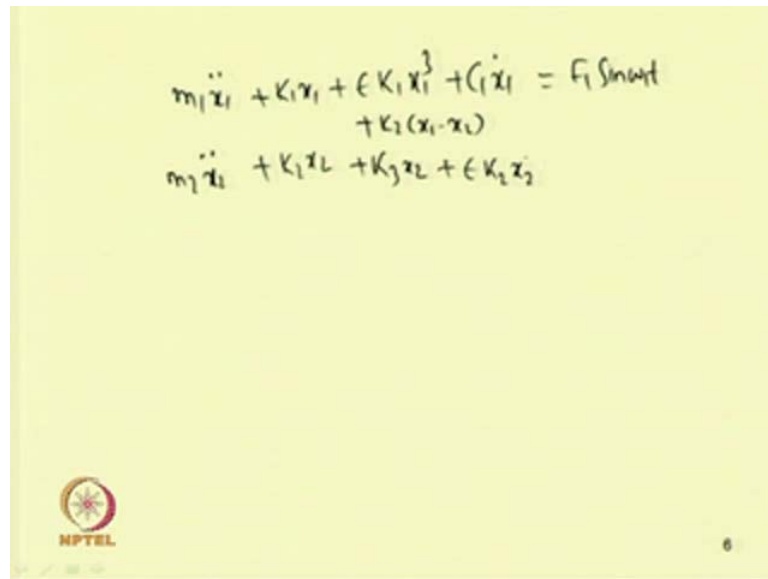 m₁ẍ₁ + K₁x₁ + ϵK₁x₁³ + C₁ẋ₁ = F₁ Sinω₁t
+ K₂(x₁-x₂)
m₂ẍ₂ + K₂x₂ + K₃x₂ + ϵK₂x₂
NPTEL
6